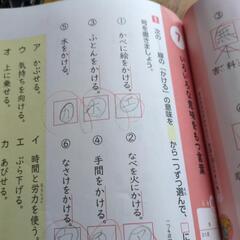 ③
無
料
7 いろいろな意味をもつ言葉
1 次の 線の「かける」の意味を から一つずつ選んで、 に
号を書きましょう。
① かべに絵をかける。 エ
② なべを火にかける。
③ ふとんをかける。
④ 手間をかける。
⑤ 水をかける。 カ
⑥ なさけをかける。
ア かぶせる。 イ 時間と労力を使う。
ウ 気持ちを向ける。 エ ぶら下げる。
オ 上に乗せる。 カ あびせる。